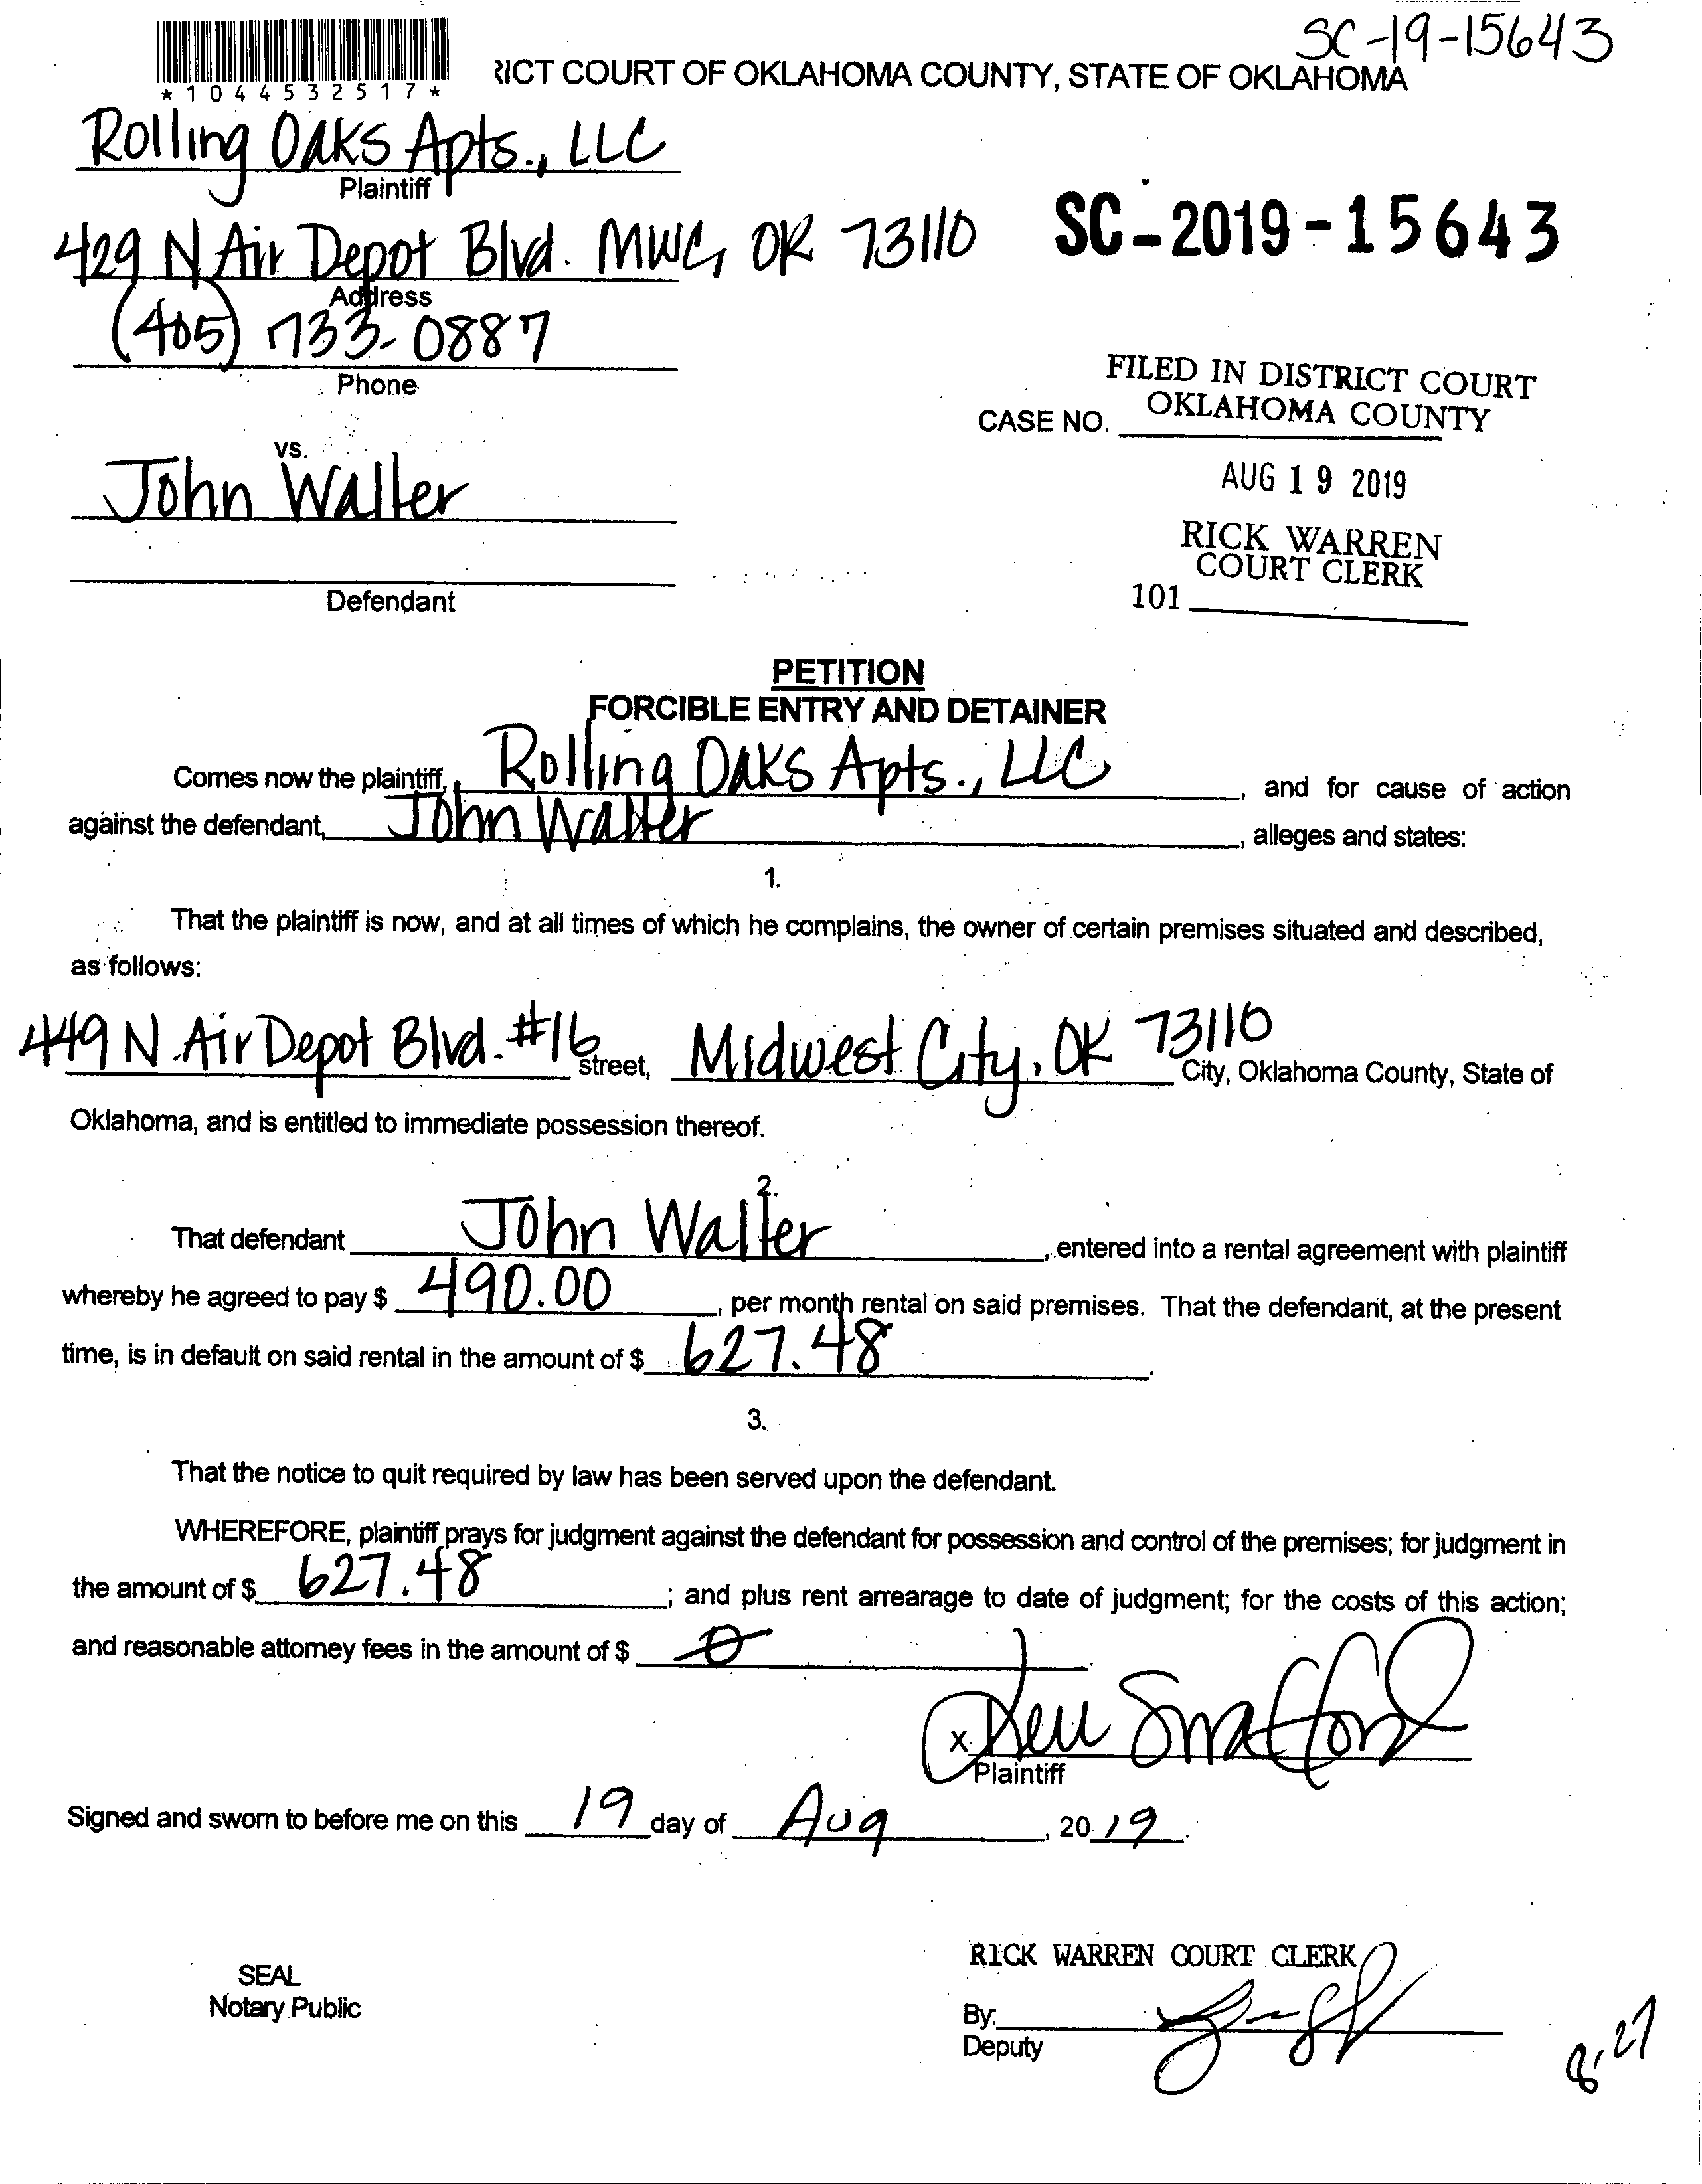 SC-19-15643
*1044532517*
RICT COURT OF OKLAHOMA COUNTY, STATE OF OKLAHOMA
Rolling Oaks Apts., LLC
Plaintiff
429 N Air Depot Blvd. MWC, OK 73110
SC-2019-15643
Address
(405) 733-0887
Phone
FILED IN DISTRICT COURT
CASE NO. OKLAHOMA COUNTY
vs.
John Walter
AUG 19 2019
RICK WARREN
COURT CLERK
101
Defendant
PETITION
FORCIBLE ENTRY AND DETAINER
Comes now the plaintiff, Rolling Oaks Apts., LLC, and for cause of action
against the defendant, John Walter, alleges and states:
1.
That the plaintiff is now, and at all times of which he complains, the owner of certain premises situated and described,
as follows:
449 N. Air Depot Blvd. #16 street, Midwest City, OK 73110 City, Oklahoma County, State of
Oklahoma, and is entitled to immediate possession thereof.
2.
That defendant John Walter, entered into a rental agreement with plaintiff
whereby he agreed to pay $ 490.00, per month rental on said premises. That the defendant, at the present
time, is in default on said rental in the amount of $ 627.48.
3.
That the notice to quit required by law has been served upon the defendant.
WHEREFORE, plaintiff prays for judgment against the defendant for possession and control of the premises; for judgment in
the amount of $ 627.48; and plus rent arrearage to date of judgment; for the costs of this action;
and reasonable attorney fees in the amount of $ 0.
x
Plaintiff
Signed and sworn to before me on this 19 day of Aug, 2019.
RICK WARREN COURT CLERK
SEAL
Notary Public
By:
Deputy
8.27